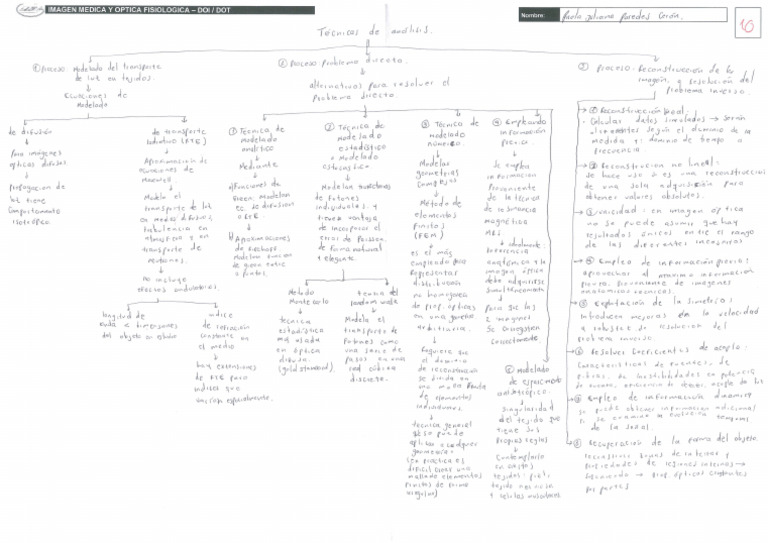 IMAGEN MEDICA Y OPTICA FISIOLOGICA – DOI / DOT
Nombre: Paola Juliana Paredes Cerón.
10
Técnicas de análisis.
① Proceso: Modelado del transporte
de luz en tejidos.
Ecuaciones de
Modelado
de difusión
Para imágenes
opticas difusas.
Propagacion de
luz tiene
Comportamiento
isotrópico
de transporte
radiativo (RTE)
Aproximación de
ecuaciones de
Maxwell
Modela el
transporte de luz
en medios difusivos,
turbulencia en
atmosfera y en
transporte de
neutrones.
No incluye
efectos ondulatorios.
longitud de
onda < dimensiones
del objeto
indice
de refracción
constante en
el medio
hay extensiones
de RTE para
indices que
varian espacialmente.
② Proceso problema directo.
alternativas para resolver el
Problema directo
① Técnica de
modelado
analítico
Mediante
Funciones de
Green. modelan
ec. de difusion
o RTE
Aproximaciones
② Técnica de
modelado
estadístico
o Modelado
estocastico
Modelan
de fotones
individuales y
tiene ventaja
de incorporar el
error de Poisson
de forma natural
y elegante.
Metodo
Montecarlo
técnica
estadística
más usada
en óptica
difusa.
(gold standard)
random walk
Modela el
transporte de
fotones como
una serie de
pasos en una
red cúbica
discreta.
③ Técnica de
modelado
númerico
Modelar
geometrías
Complejas
Método de
elementos
finitos
(FEM)
es el más
empleado para
Representar
distribuciones
no homogenea
de prop. opticas
en una geome
arbitraria.
Requiere que
el dominio
de reconstrucción
se divida en
de elementos
individuales.
técnica general
se puede
aplicar a cualquier
geometría:
difícil crear una
malla de elementos
finitos de forma
④ Empleando
información
previa.
Se emplea
informacion
Proveniente
de la técnica
de resonancia
magnética
MRI
idealmente:
referencia
anatómica y la
imagen óptica
debe adquirirse
simultáneamente
para que las
2 imagenes
Se
correctamente
⑤ modelado
de esparcimiento
anisotrópico.
Singularidad
del tejido
que
tiene sus
propias reglas
Contemplarlo
en ciertos
tejidos: piel,
tejido nervioso
y celulas musculares.
③ Proceso: Reconstrucción de la
imagen, o resolución del
Problema inverso.
① Reconstrucción lineal:
Calcular datos simulados → serán
según el dominio de la
medida y: dominio de tiempo o
frecuencia.
② Reconstruccion no lineal:
se hace uso o es una reconstrucción
de una sola adquisición para
obtener valores absolutos.
③ Unicidad: en imagen óptica
no se puede asumir que hay
resultados únicos entre el rango
de las diferentes incognitas
④ Empleo de información previa:
aprovechar al máximo información
previa, proveniente de imagenes
anatomicas
⑤ Explotación de la simetria:
introduce mejoras de la velocidad
y robustez de resolucion del
problema inverso.
⑥ Resolver Coeficientes de acople:
Caracteristicas de fuentes, de
⑦ Empleo de información dinamica
se puede obtener informacion adicional
si se examina la evolucion temporal
de la señal
⑧ Recuperación de la forma del objeto
reconstruir
propiedades de
prop. ópticas constantes
por partes